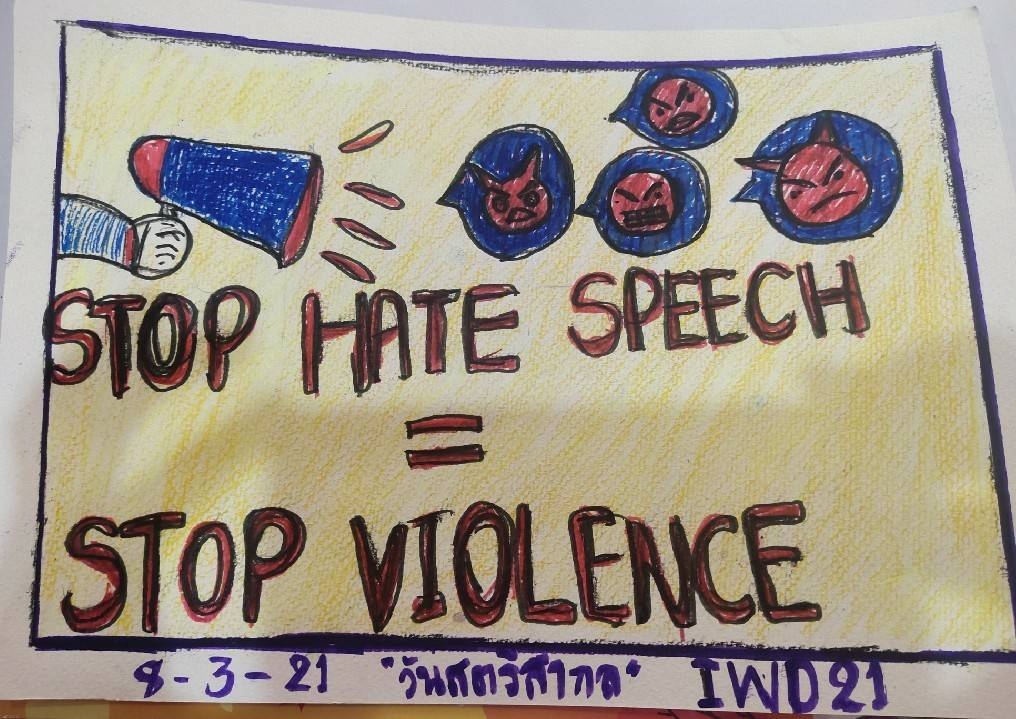 STOP HATE SPEECH
=
STOP VIOLENCE
8-3-21 "วันสตรีสากล" IWD21